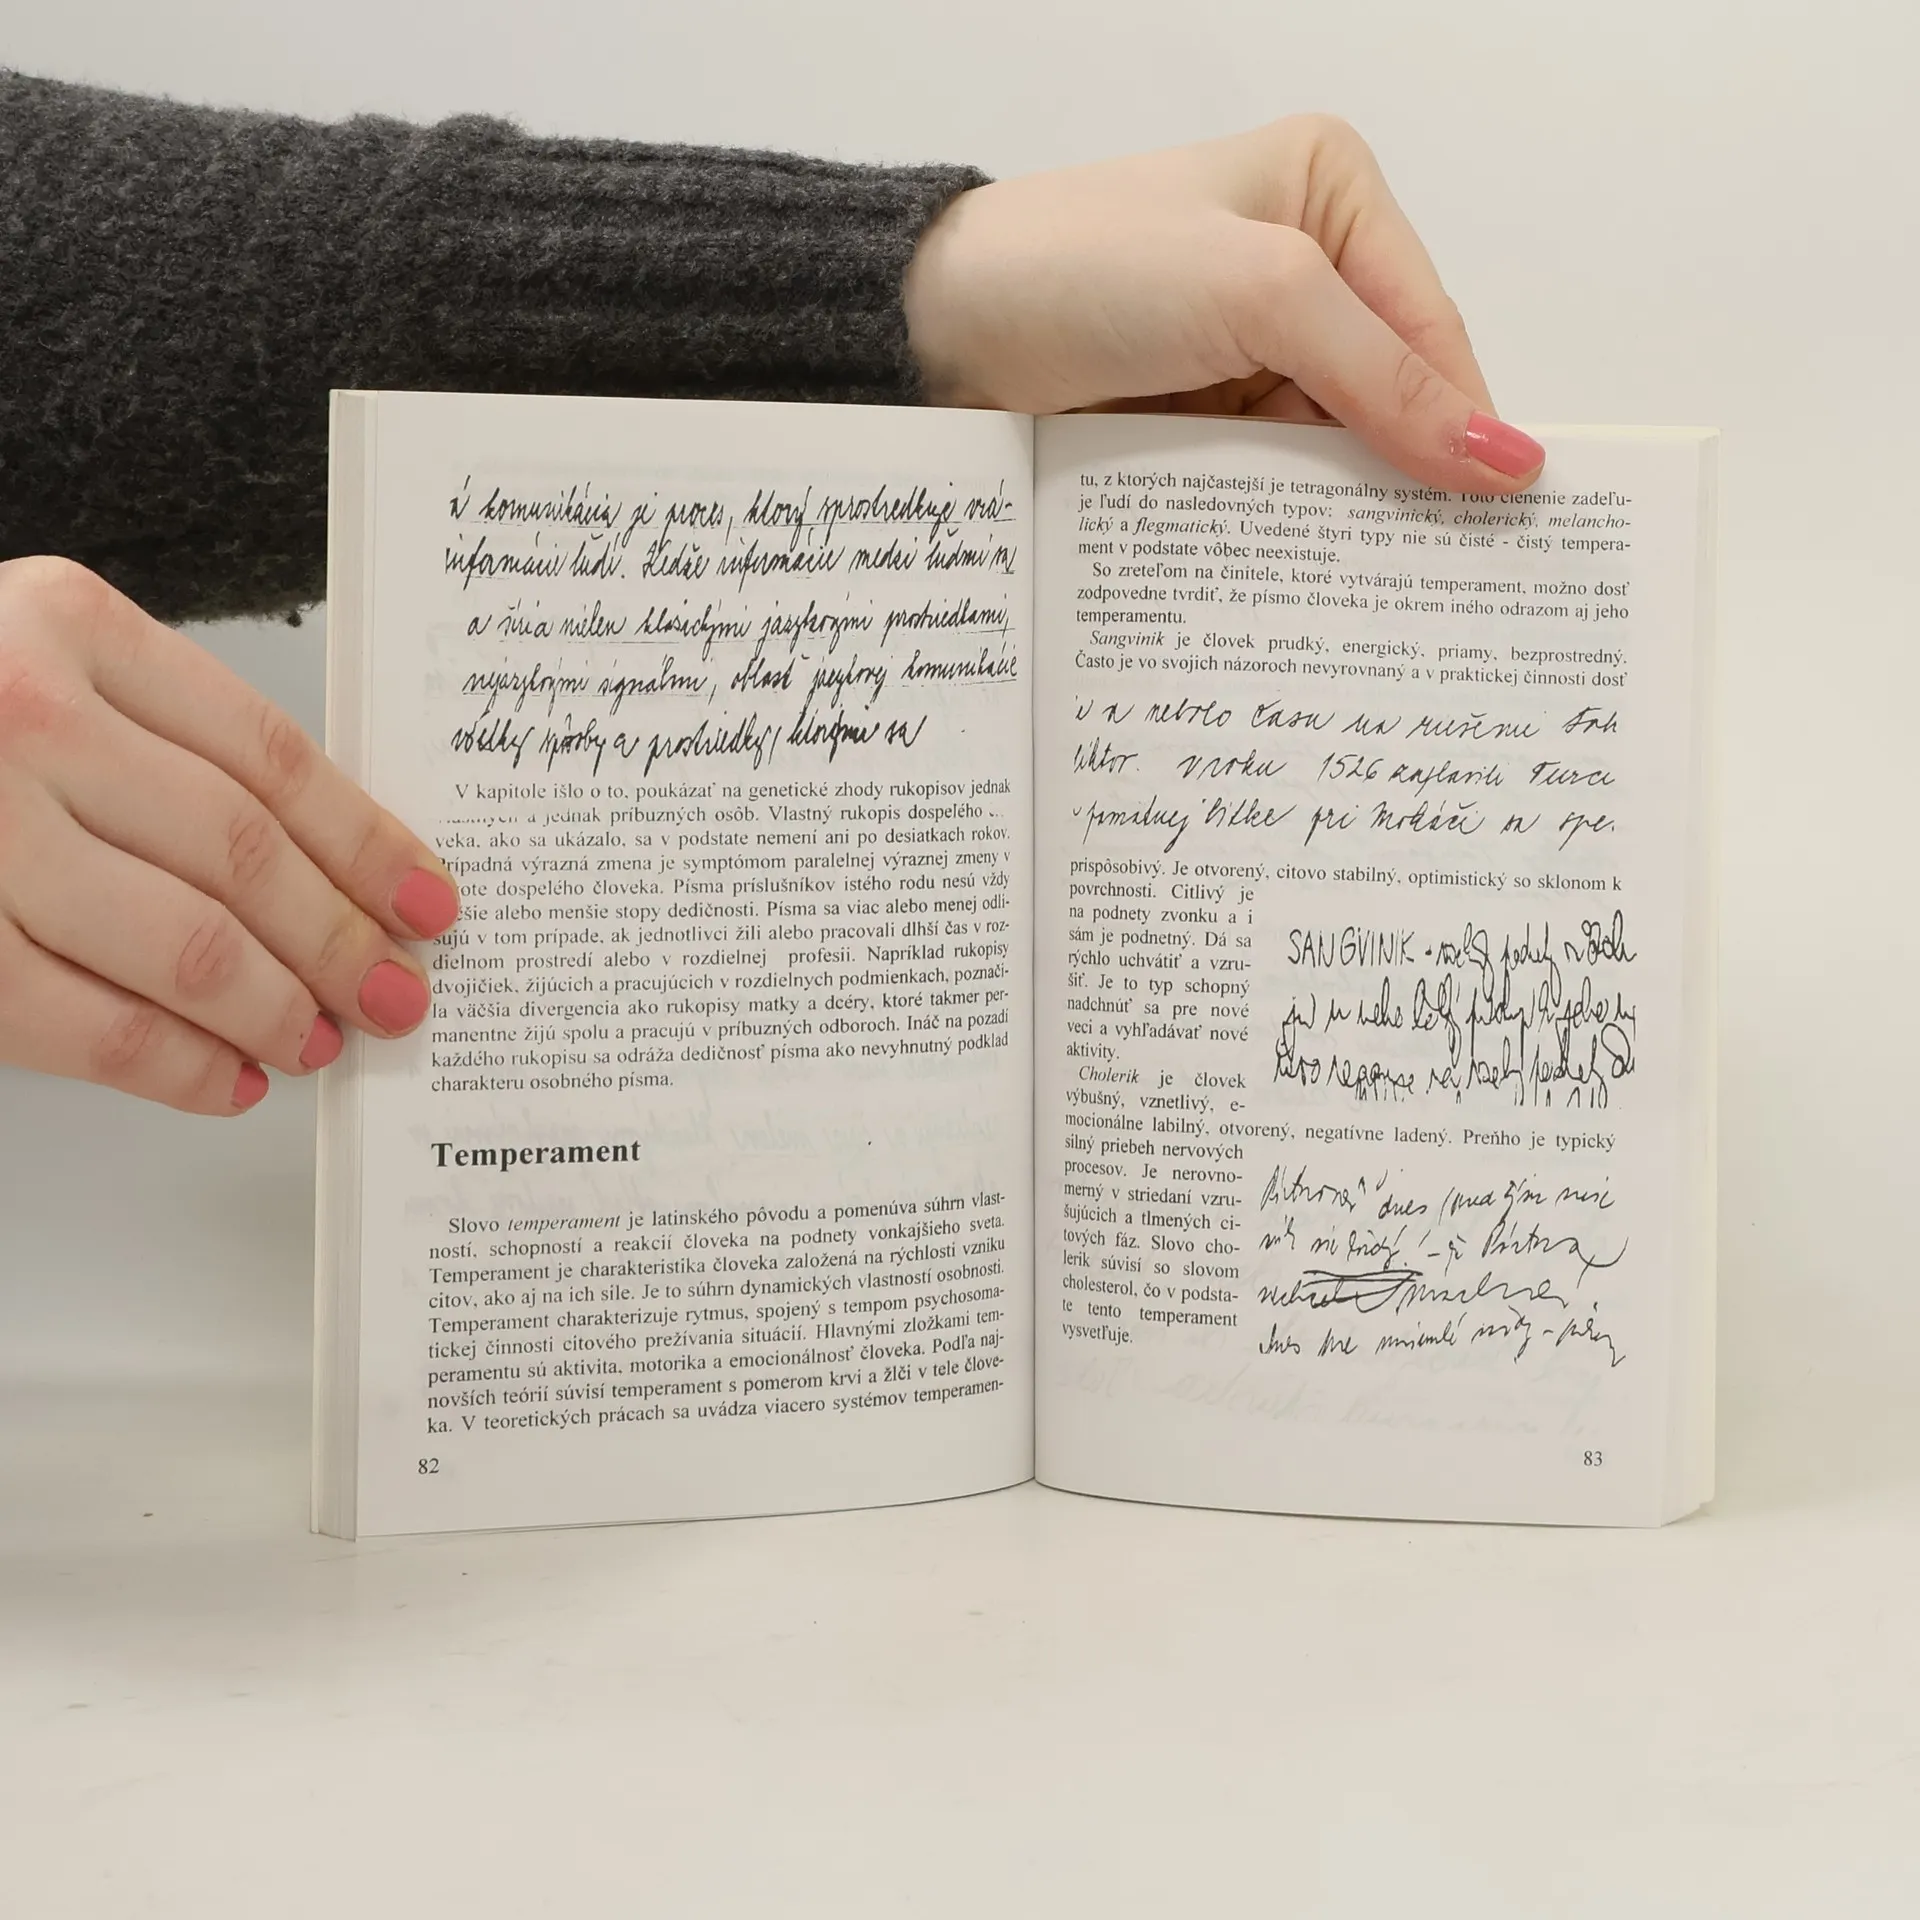 á komunikácia je proces, ktorý sprostredkuje
informácií ľudí. Kedže informácie medzi ľuďmi sa
a šíria nielen klasickými jazykovými prostriedkami,
nejazykovými signálmi, oblasť jazykovej komunikácie
všetky spôsoby a prostriedky, ktorými sa
V kapitole išlo o to, poukázať na genetické zhody rukopisov jednak
a jednak príbuzných osôb. Vlastný rukopis dospelého
veka, ako sa ukázalo, sa v podstate nemení ani po desiatkach rokov.
Prípadná výrazná zmena je symptómom paralelnej výraznej zmeny v
dospelého človeka. Písma príslušníkov istého rodu nesú vždy
alebo menšie stopy dedičnosti. Písma sa viac alebo menej odli-
šujú v tom prípade, ak jednotlivci žili alebo pracovali dlhší čas v roz-
dielnom prostredí alebo v rozdielnej profesii. Napríklad rukopisy
dvojičiek, žijúcich a pracujúcich v rozdielnych podmienkach, poznači-
la väčšia divergencia ako rukopisy matky a dcéry, ktoré takmer per-
manentne žijú spolu a pracujú v príbuzných odboroch. Ináč na pozadí
každého rukopisu sa odráža dedičnosť písma ako nevyhnutný podklad
charakteru osobného písma.
Temperament
Slovo temperament je latinského pôvodu a pomenúva súhrn vlast-
ností, schopností a reakcií človeka na podnety vonkajšieho sveta.
Temperament je charakteristika človeka založená na rýchlosti vzniku
citov, ako aj na ich sile. Je to súhrn dynamických vlastností osobnosti.
Temperament charakterizuje rytmus, spojený s tempom psychosoma-
tickej činnosti citového prežívania situácií. Hlavnými zložkami tem-
peramentu sú aktivita, motorika a emocionálnosť človeka. Podľa naj-
novších teórií súvisí temperament s pomerom krvi a žlči v tele člove-
ka. V teoretických prácach sa uvádza viacero systémov temperamen-
82
tu, z ktorých najčastejší je tetragonálny systém. Toto členenie zadeľu-
je ľudí do nasledovných typov: sangvinický, cholerický, melancho-
lický a flegmatický. Uvedené štyri typy nie sú čisté - čistý tempera-
ment v podstate vôbec neexistuje.
So zreteľom na činitele, ktoré vytvárajú temperament, možno dosť
zodpovedne tvrdiť, že písmo človeka je okrem iného odrazom aj jeho
temperamentu.
Sangvinik je človek prudký, energický, priamy, bezprostredný.
Často je vo svojich názoroch nevyrovnaný a v praktickej činnosti dosť
a nebolo času na rušenie
v roku 1526 zaplavili Turci
pamätnej bitke pri Moháči sa
prispôsobivý. Je otvorený, citovo stabilný, optimistický so sklonom k
povrchnosti. Citlivý je
na podnety zvonku a i
sám je podnetný. Dá sa
rýchlo uchvátiť a vzru-
šiť. Je to typ schopný
nadchnúť sa pre nové
veci a vyhľadávať nové
aktivity.
SANGVINIK -
Cholerik je človek
výbušný, vznetlivý, e-
mocionálne labilný, otvorený, negatívne ladený. Preňho je typický
silný priebeh nervových
procesov. Je nerovno-
merný v striedaní vzru-
šujúcich a tlmených ci-
tových fáz. Slovo cho-
lerik súvisí so slovom
cholesterol, čo v podsta-
te tento temperament
vysvetľuje.
dnes
83